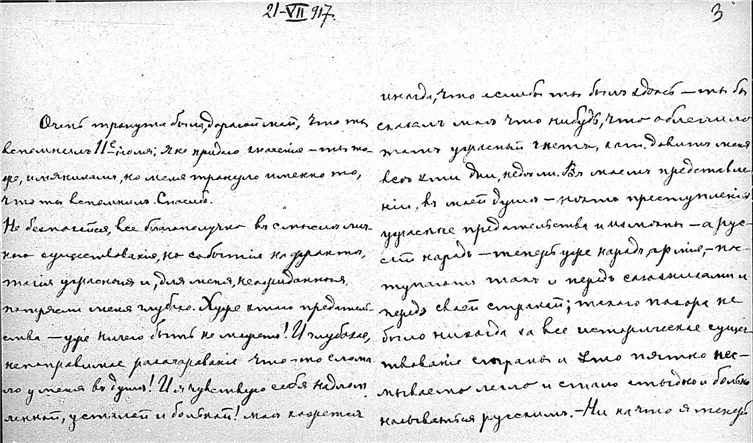 21-VII 917.
3
Очень тронута была, дорогой мой, что ты
вспомнилъ 11ое iюля; я не придаю значенiя – ты то
же, имянинамъ, но меня тронуло именно то,
что ты вспомнилъ. Спасибо.
Не безпокойся, все благополучно въ смыслѣ лич
наго существованiя, но событiя на фронтѣ,
такiя ужасныя и, для меня, неожиданныя,
потрясли меня глубоко. Хуже этого предатель
ства – уже ничего быть не можетъ! И глубокое,
непоправимое разочарованiе что-то слома
ло у меня въ душѣ! И я чувствую себя надлом
ленной, усталой и больной! Мнѣ кажется
иногда, что если бы ты былъ здѣсь – ты бы
сказалъ мнѣ что нибудь, что облегчило
этотъ ужасный гнетъ, кот. давитъ меня
всѣ эти дни, недѣли. Въ моемъ представле
нiи, въ моей душѣ – нѣтъ преступленiя
ужаснѣе предательства и измѣны – а рус
скiй народъ – теперь уже народъ, армiя, – по-
ступаютъ такъ и передъ союзниками и
передъ своей страной; такого позора не
было никогда за все историческое сущес
твованiе страны и это пятно нес
мываемо легло и стало стыдно и больно
называться русскимъ. – Ни на что я теперь